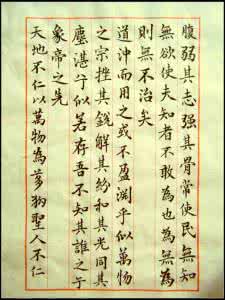 腹弱其志强其骨常使民無知
無欲使夫知者不敢為也為無為
則無不治矣
道沖而用之或不盈淵乎似萬物
之宗挫其銳解其紛和其光同其
塵湛兮似若存吾不知其誰之子
象帝之先
天地不仁以萬物為芻狗聖人不仁